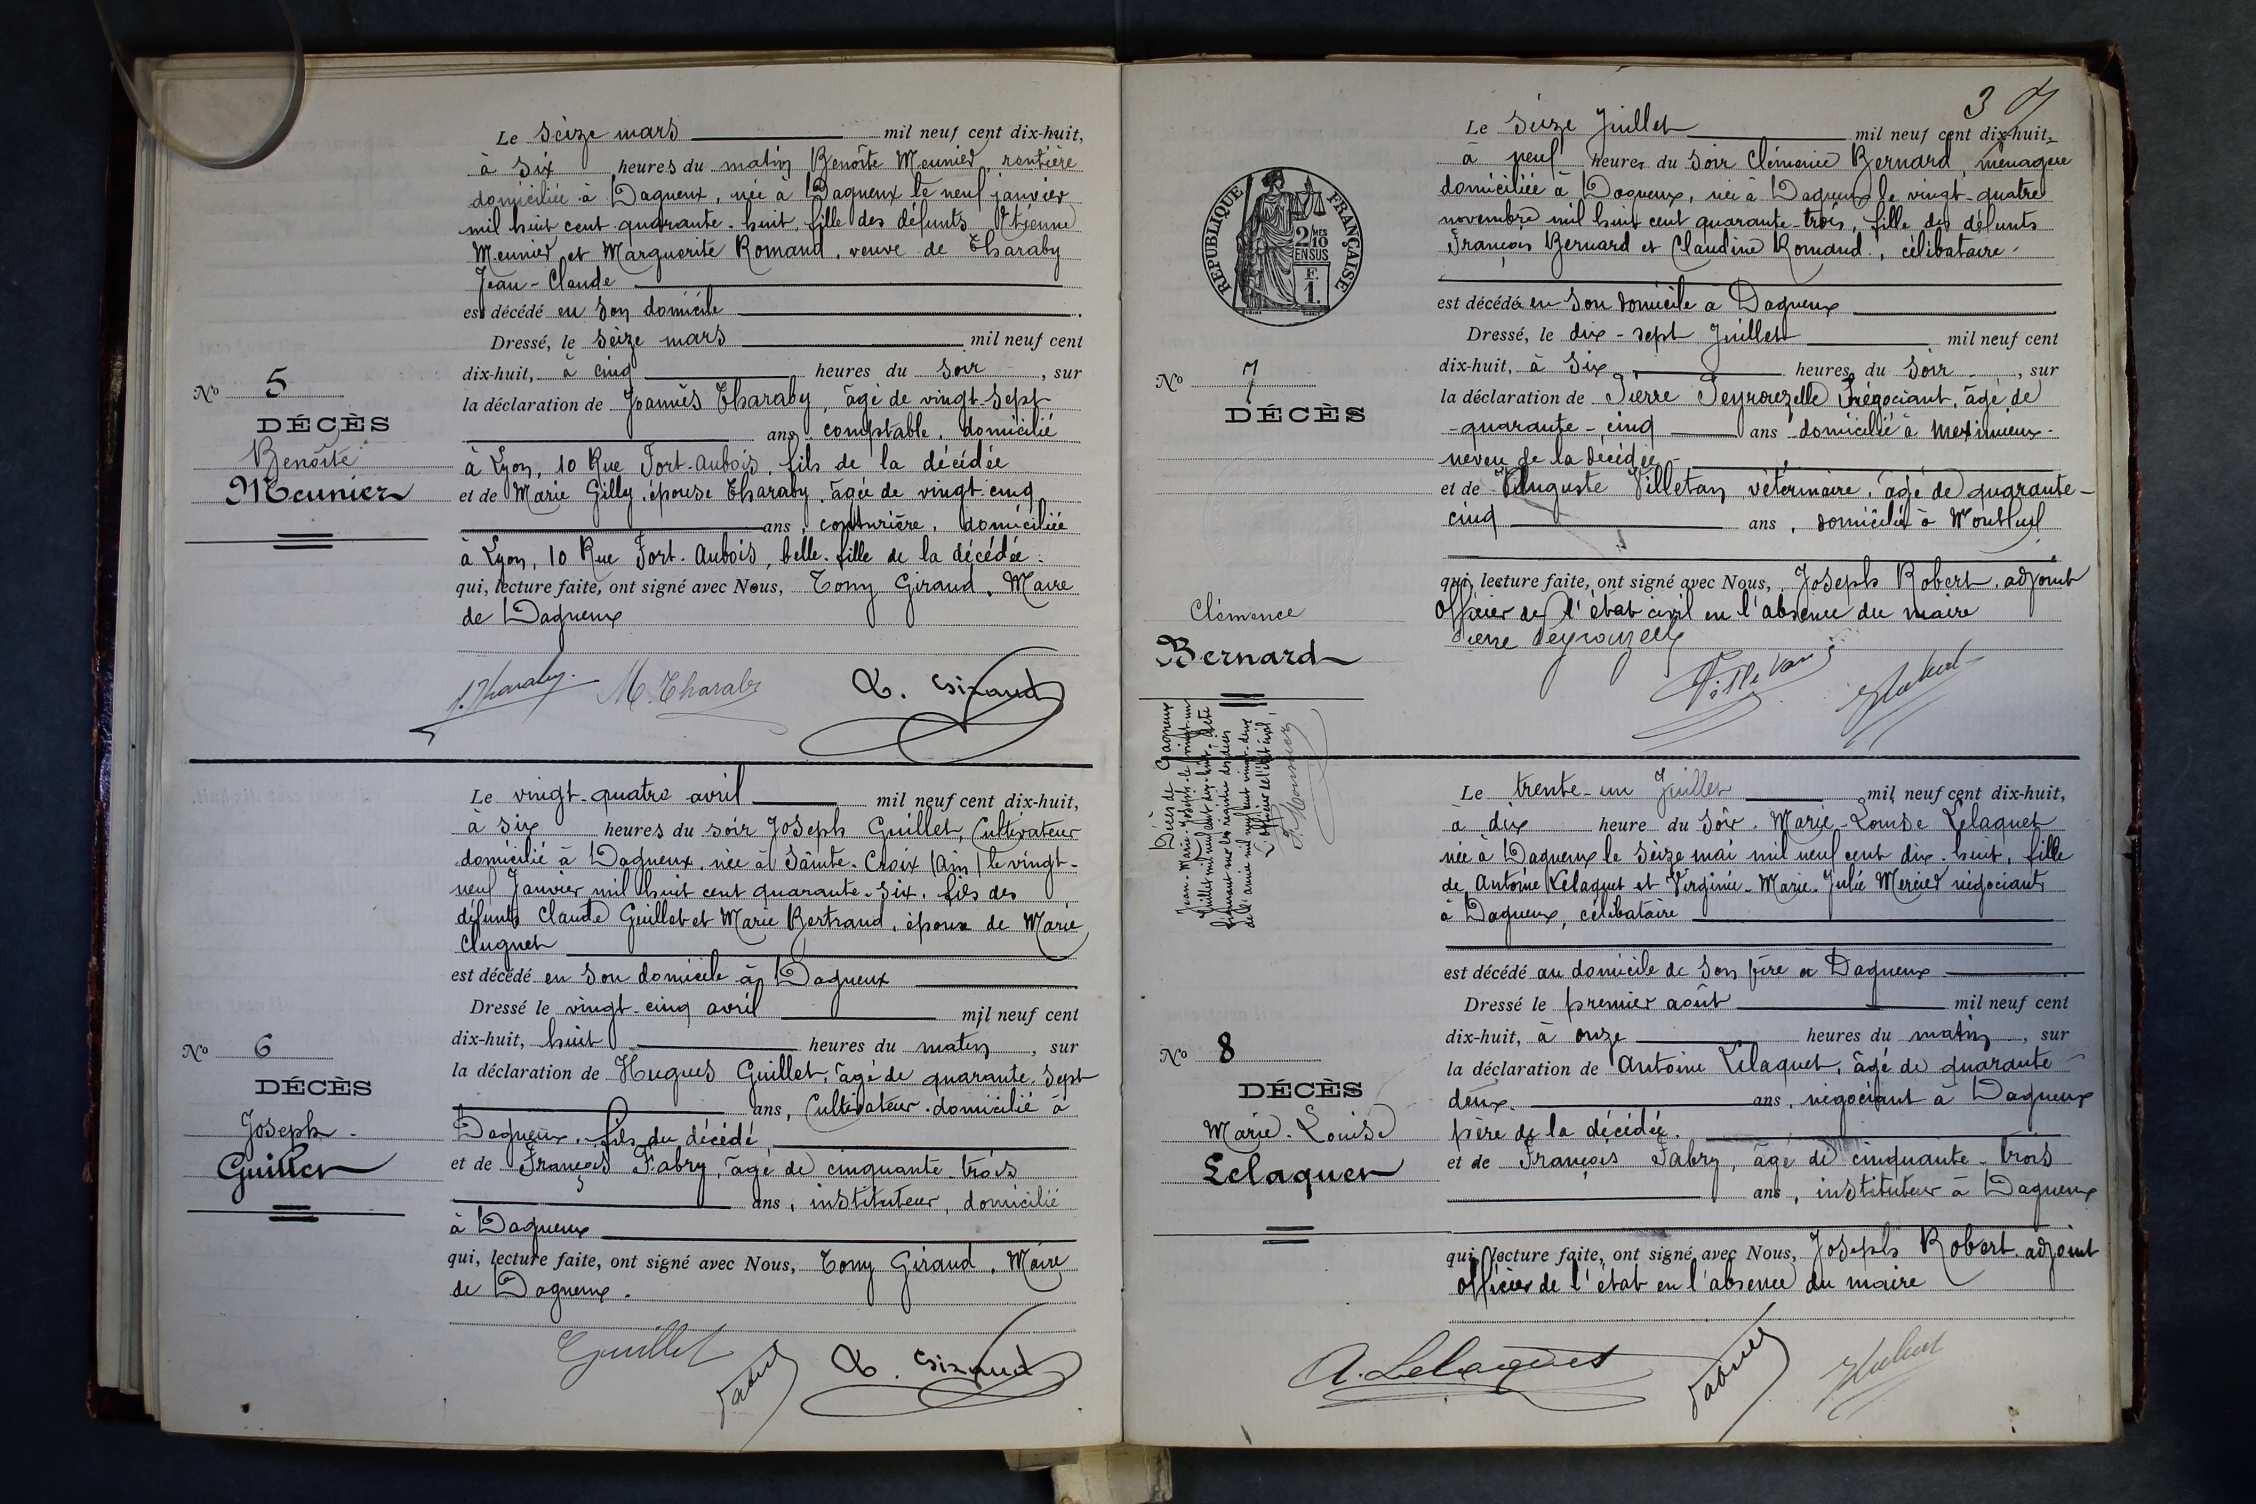 Le seize mars mil neuf cent dix-huit,
à six heures du matin Benoîte Meunier, rentière
domiciliée à Dagneux, née à Dagneux le neuf janvier
mil huit cent quarante-huit, fille des défunts Etienne
Meunier et Marguerite Romand, veuve de Tharaby
Jean-Claude
est décédé en son domicile
Dressé, le seize mars mil neuf cent
dix-huit, à cinq heures du soir, sur
la déclaration de Joannès Tharaby, âgé de vingt-sept
ans, comptable, domicilié
à Lyon, 10 Rue Fort-Aubois, fils de la décédée
et de Marie Gilly épouse Tharaby, âgée de vingt-cinq
ans, couturière, domiciliée
à Lyon, 10 Rue Fort-Aubois, belle-fille de la décédée.
qui, lecture faite, ont signé avec Nous, Tony Giraud, Maire
de Dagneux
J. Tharaby M. Tharaby T. Giraud
No 5
DÉCÈS
Benoîte
Meunier
Le vingt-quatre avril mil neuf cent dix-huit,
à six heures du soir Joseph Guillet, Cultivateur
domicilié à Dagneux, née à Sainte-Croix (Ain) le vingt-
neuf Janvier mil huit cent quarante-six, fils des
défunts Claude Guillet et Marie Bertrand, époux de Marie
Clugnet
est décédé en son domicile à Dagneux
Dressé le vingt-cinq avril mil neuf cent
dix-huit, huit heures du matin, sur
la déclaration de Hugues Guillet, âgé de quarante-sept
ans, Cultivateur domicilié à
Dagneux, fils du décédé
et de François Fabry, âgé de cinquante-trois
ans, instituteur, domicilié
à Dagneux
qui, lecture faite, ont signé avec Nous, Tony Giraud, Maire
de Dagneux.
Guillet Fabry T. Giraud
No 6
DÉCÈS
Joseph
Guillet
3
RÉPUBLIQUE FRANÇAISE
2 MES
10
EN SUS
F.
1.
Le seize Juillet mil neuf cent dix-huit,
à neuf heures du soir Clémence Bernard, ménagère
domiciliée à Dagneux, née à Dagneux le vingt-quatre
novembre mil huit cent quarante-trois, fille des défunts
François Bernard et Claudine Romand, célibataire
est décédée en son domicile à Dagneux
Dressé, le dix-sept Juillet mil neuf cent
dix-huit, à six heures du soir, sur
la déclaration de Pierre Peyrouzelle négociant, âgé de
quarante-cinq ans domicilié à Meximieux
neveu de la décédée
et de Auguste Villetan vétérinaire, âgé de quarante-
cinq ans, domicilié à Montluel
qui, lecture faite, ont signé avec Nous, Joseph Robert, adjoint
officier de l'état civil en l'absence du maire
Pierre Peyrouzelle
Robert
No 7
DÉCÈS
Clémence
Bernard
Décès de Dagneux
Jean-Marie-Joseph le vingt-un
Juillet mil neuf cent dix-huit. Acte
figurant sur les registres des décès
de l'année mil neuf cent vingt-deux
L'officier de l'état civil,
Le trente-un Juillet mil neuf cent dix-huit,
à dix heure du soir. Marie-Louise Lelaquet
née à Dagneux le seize mai mil neuf cent dix-huit, fille
de Antoine Lelaquet et Virginie-Marie-Julie Mercier négociants
à Dagneux, célibataire
est décédé au domicile de son père à Dagneux
Dressé le premier août mil neuf cent
dix-huit, à onze heures du matin, sur
la déclaration de Antoine Lelaquet, âgé de quarante
deux ans, négociant à Dagneux
père de la décédée.
et de François Fabry, âgé de cinquante-trois
ans, instituteur à Dagneux
qui, lecture faite, ont signé avec Nous, Joseph Robert, adjoint
officier de l'état en l'absence du maire
A. Lelaquet Fabry Robert
No 8
DÉCÈS
Marie-Louise
Lelaquet